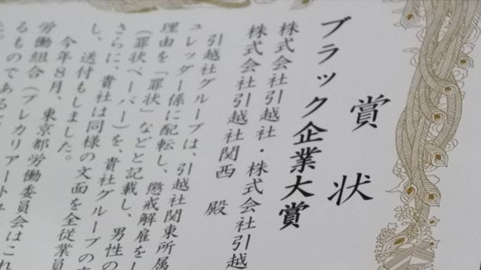 賞状
ブラック企業大賞
株式会社引越社・株式会社引越
株式会社引越社関西 殿
引越社グループは、引越社関東所属
ュレッダー係に配転し、懲戒解雇をし
理由を「罪状」などと記載し、男性の
(罪状ペーパー)を、貴社グループの
さらに、貴社は同様の文面を全従業員
し、送付もしました。
今年8月、東京都労働委員会は
労働組合(プレカリアート
るものであると